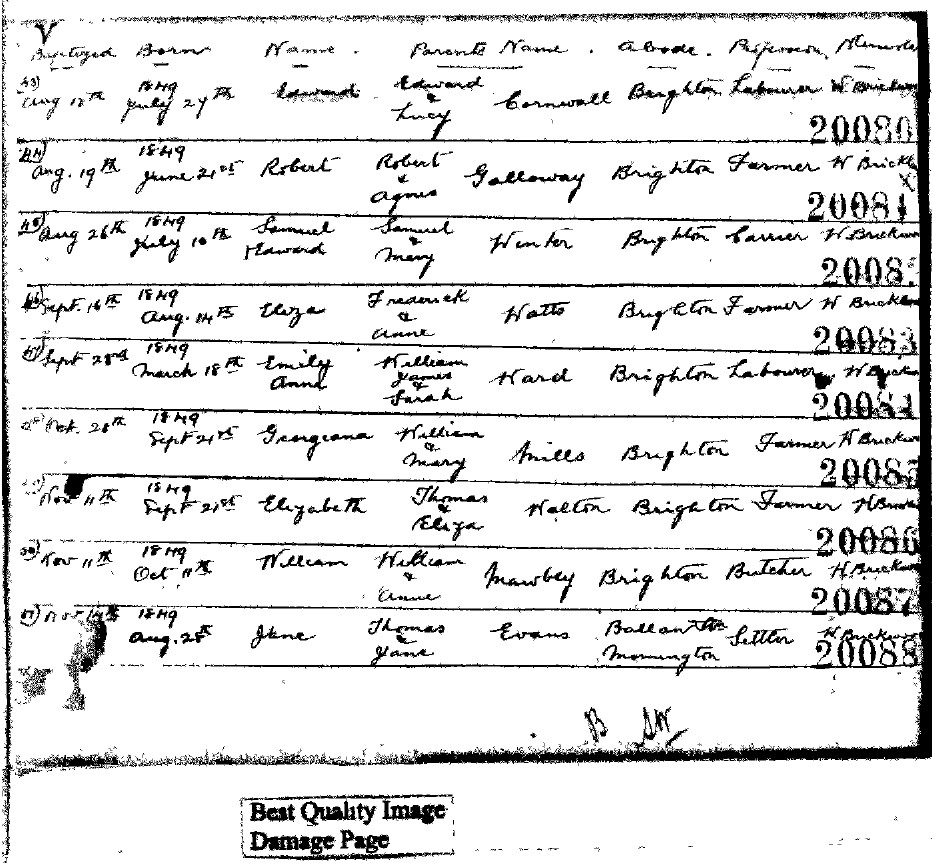 V
Baptized Born Name. Parents Name. Abode. Profession, Ministe
43) Aug 12th 1849 July 27th Edward Edward & Lucy Cornwall Brighton Labourer W Brickwo
20080
44) Aug. 19th 1849 June 21st Robert Robert & Agnes Galloway Brighton Farmer W Brickw
x
20081
45) Aug 26th 1849 July 10th Samuel Edward Samuel & Mary Winter Brighton Carrier W Brickwoo
2008
46) Sept. 16th 1849 Aug. 14th Eliza Frederick & Anne Watts Brighton Farmer W Brickw
20083
47) Sept 23rd 1849 March 18th Emily Anna William James & Sarah Ward Brighton Labourer, W Brickwo
20084
Oct. 28th 1849 Sept 21st Georgiana William & Mary Mills Brighton Farmer W Brickwoo
20085
Nov 11th 1849 Sept 21st Elizabeth Thomas & Eliza Walton Brighton Farmer W Brickwo
20086
50) Nov 11th 1849 Oct 11th William William & Anne Mawbey Brighton Butcher W Brickwoo
20087
51) Nov 14th 1849 Aug. 28th Jane Thomas & Jane Evans Mornington Settler W Brickwoo
20088
B SW
Best Quality Image
Damage Page